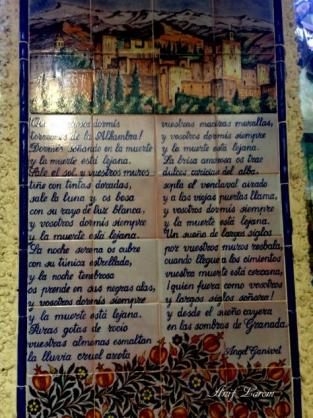 dormís
torreones de la Alhambra!
Dormís soñando en la muerte
y la muerte está lejana.
Sale el sol y vuestros muros
tiñe con tintas doradas,
sale la luna y os besa
con su rayo de luz blanca,
y vosotros dormís siempre
y la muerte está lejana.
La noche serena os cubre
con su túnica estrellada,
y la noche tenebrosa
os prende en sus negras alas,
y vosotros dormís siempre
y la muerte está lejana.
Puras gotas de rocío
vuestras almenas esmaltan
la lluvia cruel azota
vuestras macizas murallas,
y vosotros dormís siempre
y la muerte está lejana.
La brisa amorosa os trae
dulces caricias del alba.
sopla el vendaval airado
y a las viejas puertas llama,
y vosotros dormís siempre
y la muerte está lejana.
Un sueño de largos siglos
por vuestros muros resbala,
cuando llegue a los cimientos
vuestra muerte está cercana,
¡quien fuera como vosotros
y largos siglos soñara!
y desde el sueño cayera
en las sombras de Granada.
Angel Ganivet